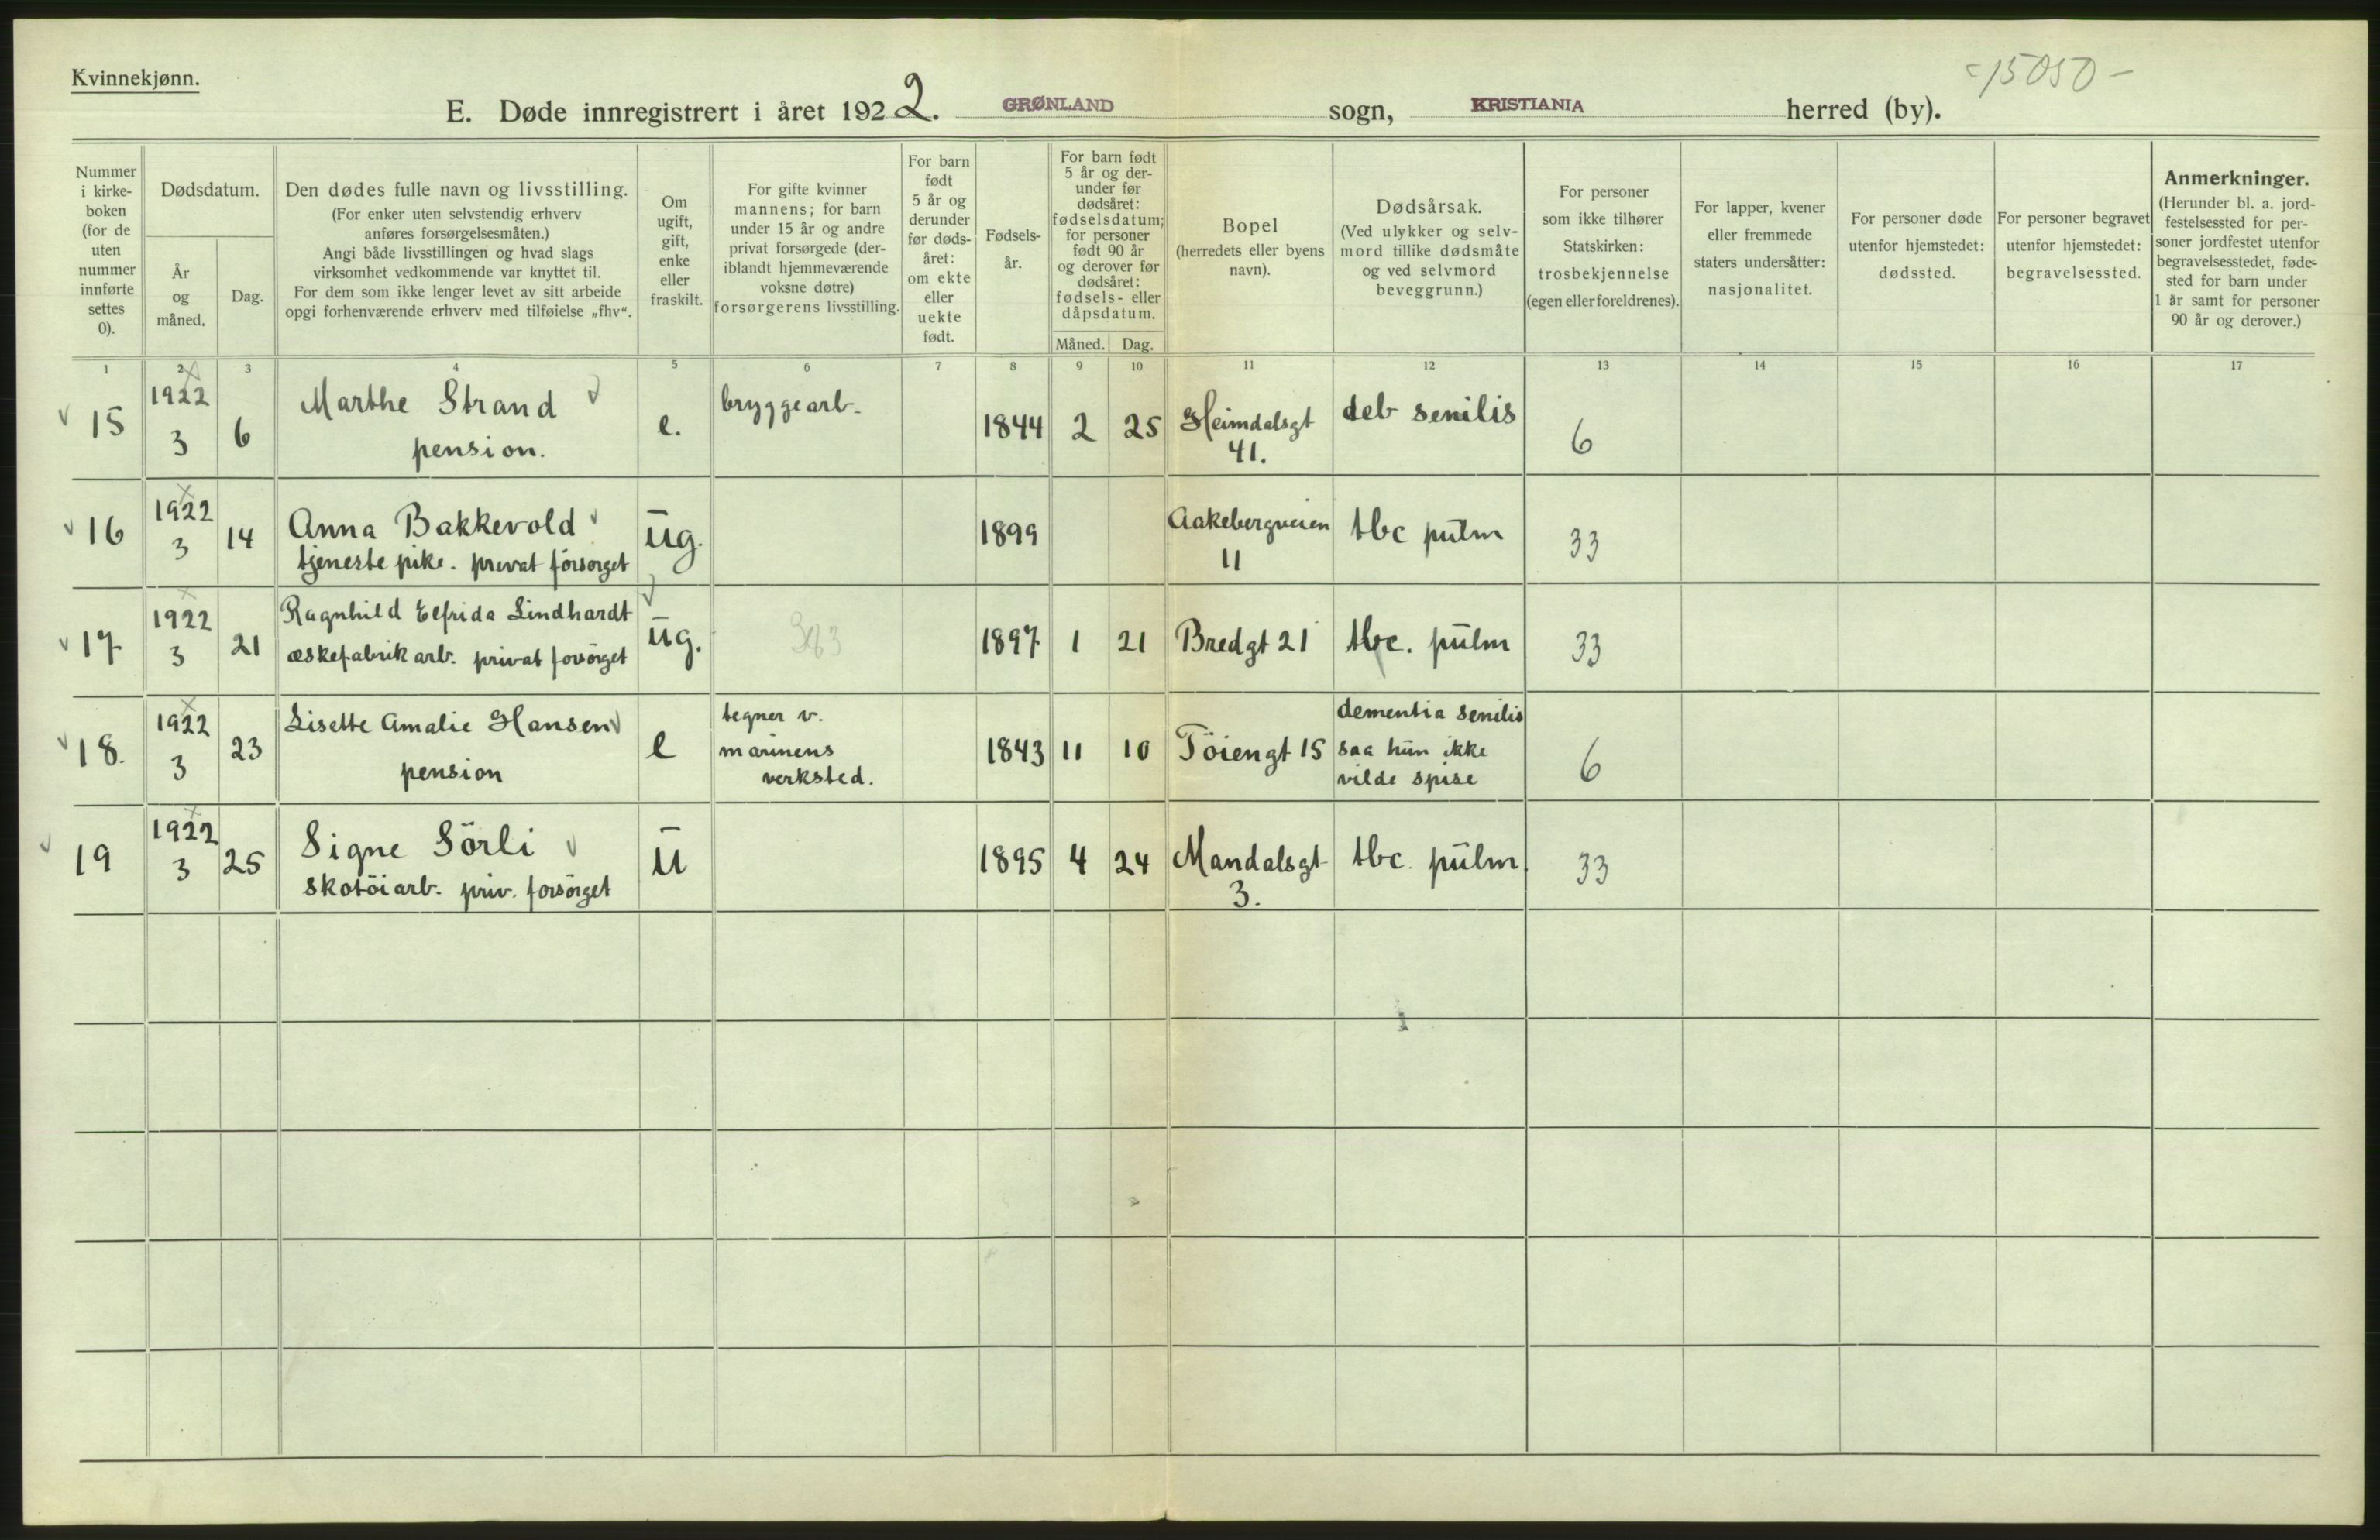 Kvinnekjønn.
15050 –
E. Døde innregistrert i året 1922. GRØNLAND sogn, KRISTIANIA herred (by).
Nummer i kirkeboken (for de uten nummer innførte settes 0).
Dødsdatum.
År og måned.
Dag.
Den dødes fulle navn og livsstilling.
(For enker uten selvstendig erhverv
anføres forsørgelsesmåten.)
Angi både livsstillingen og hvad slags
virksomhet vedkommende var knyttet til.
For dem som ikke lenger levet av sitt arbeide
opgi forhenværende erhverv med tilføielse „fhv“.
Om
ugift,
gift,
enke
eller
fraskilt.
For gifte kvinner
mannens; for barn
under 15 år og andre
privat forsørgede (der-
iblandt hjemmeværende
voksne døtre)
forsørgerens livsstilling.
For barn
født
5 år og
derunder
før døds-
året:
om ekte
eller
uekte
født.
Fødsels-
år.
For barn født
5 år og der-
under før
dødsåret:
fødselsdatum;
for personer
født 90 år
og derover før
dødsåret:
fødsels- eller
dåpsdatum.
Måned. Dag.
Bopel
(herredets eller byens
navn).
Dødsårsak.
(Ved ulykker og selv-
mord tillike dødsmåte
og ved selvmord
beveggrunn.)
For personer
som ikke tilhører
Statskirken:
trosbekjennelse
(egen eller foreldrenes).
For lapper, kvener
eller fremmede
staters undersåtter:
nasjonalitet.
For personer døde
utenfor hjemstedet:
dødssted.
For personer begravet
utenfor hjemstedet:
begravelsessted.
Anmerkninger.
(Herunder bl. a. jord-
festelsessted for per-
soner jordfestet utenfor
begravelsesstedet, føde-
sted for barn under
1 år samt for personer
90 år og derover.)
1 2 3 4 5 6 7 8 9 10 11 12 13 14 15 16 17
15 1922 3 6 Marthe Strand
pension. e. bryggearb. 1844 2 25 Heimdalsgt
41. deb senilis 6
16 1922 3 14 Anna Bakkevold
tjeneste pike. privat forsørget ug. 1899 Aakebergveien
11 tbc pulm 33
17 1922 3 21 Ragnhild Elfrida Lindhardt
æskefabrik arb. privat forsörget ug. 383 1897 1 21 Bredgt 21 tbc. pulm 33
18. 1922 3 23 Lisette Amalie Hansen
pension e tegner v.
marinens
verksted. 1843 11 10 Töiengt 15 dementia senilis
saa hun ikke
vilde spise 6
19 1922 3 25 Signe Sörli
skotöiarb. priv. forsörget u 1895 4 24 Mandalsgt
3. tbc. pulm. 33